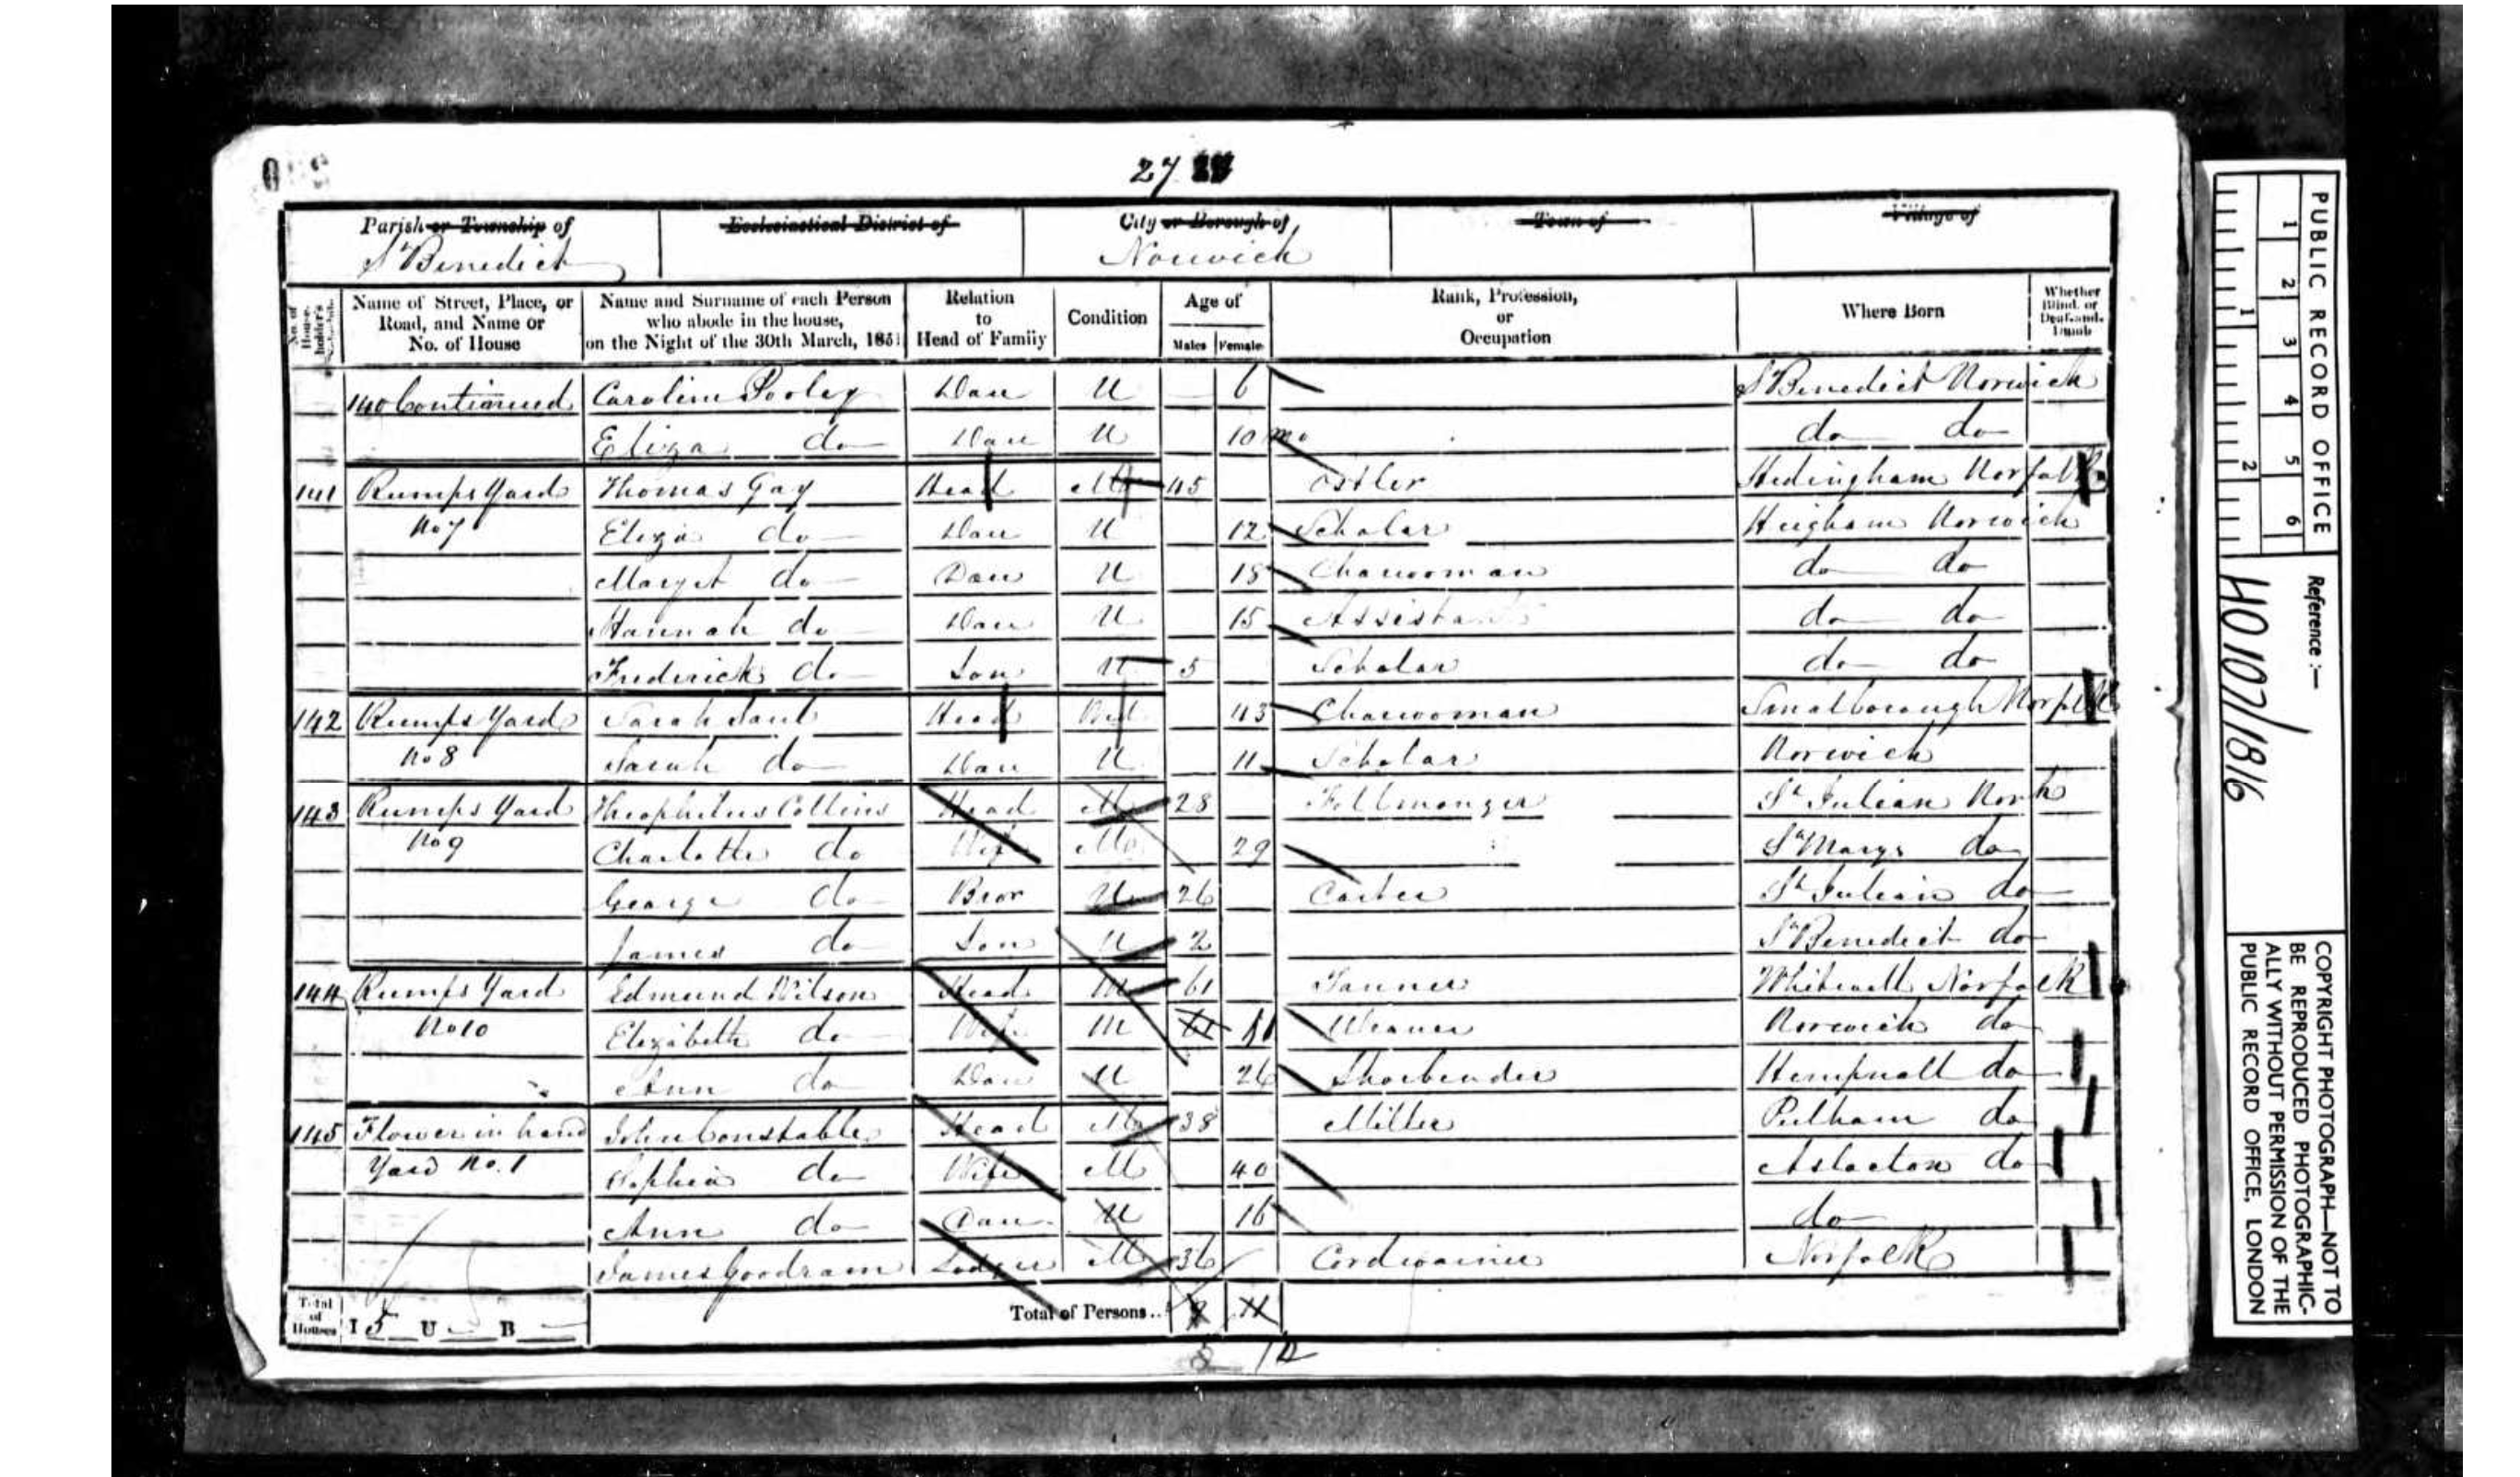 27
Parish or Township of
St Benedict
Ecclesiastical District of
City or Borough of
Norwich
Town of
Village of
No. of House-holder's
Name of Street, Place, or Road, and Name or No. of House
Name and Surname of each Person who abode in the house, on the Night of the 30th March, 1851
Relation to Head of Family
Condition
Age of
Males Females
Rank, Profession, or Occupation
Where Born
Whether Blind, or Deaf-and-Dumb
140 Continued Caroline Pooley Dau U 6 St Benedict Norwich
Eliza do Dau U 10 mo do do
141 Rumps Yard Thomas Gay Head 45 Ostler Hedingham Norfolk
No 7 Eliza do Dau U 12 Scholar Heigham Norwich
Margt do Dau U 18 Charwoman do do
Hannah do Dau U 15 Assistant do do
Frederick do Son U 5 Scholar do do
142 Rumps Yard Sarah Saul Head Wid 43 Charwoman Smalborough Norfolk
No 8 Sarah do Dau U 11 Scholar Norwich
143 Rumps Yard Theophilus Collins Head M 28 Fellmonger St Julian Norh
No 9 Charlotte do Wife M 29 St Marys do
George do Bror U 26 Carter St Julian do
James do Son U 2 St Benedict do
144 Rumps Yard Edmund Wilson Head M 61 Tanner Whitwell Norfolk
No 10 Elizabeth do Wife M Weaver Norwich do
Ann do Dau U 26 Shoebinder Hempnall do
145 Flower in hand John Constable Head M 38 Miller Pulham do
Yard No. 1 Sophia do Wife M 40 Aslacton do
Ann do Dau U 16 do
James Goodram Lodger M 36 Cordwainer Norfolk
Total of Houses I 5 U B
Total of Persons.. 11
8 12
PUBLIC RECORD OFFICE
1 2 3 4 5 6
1 2
Reference :-
HO 107/1816
COPYRIGHT PHOTOGRAPH—NOT TO
BE REPRODUCED PHOTOGRAPHIC-
ALLY WITHOUT PERMISSION OF THE
PUBLIC RECORD OFFICE, LONDON